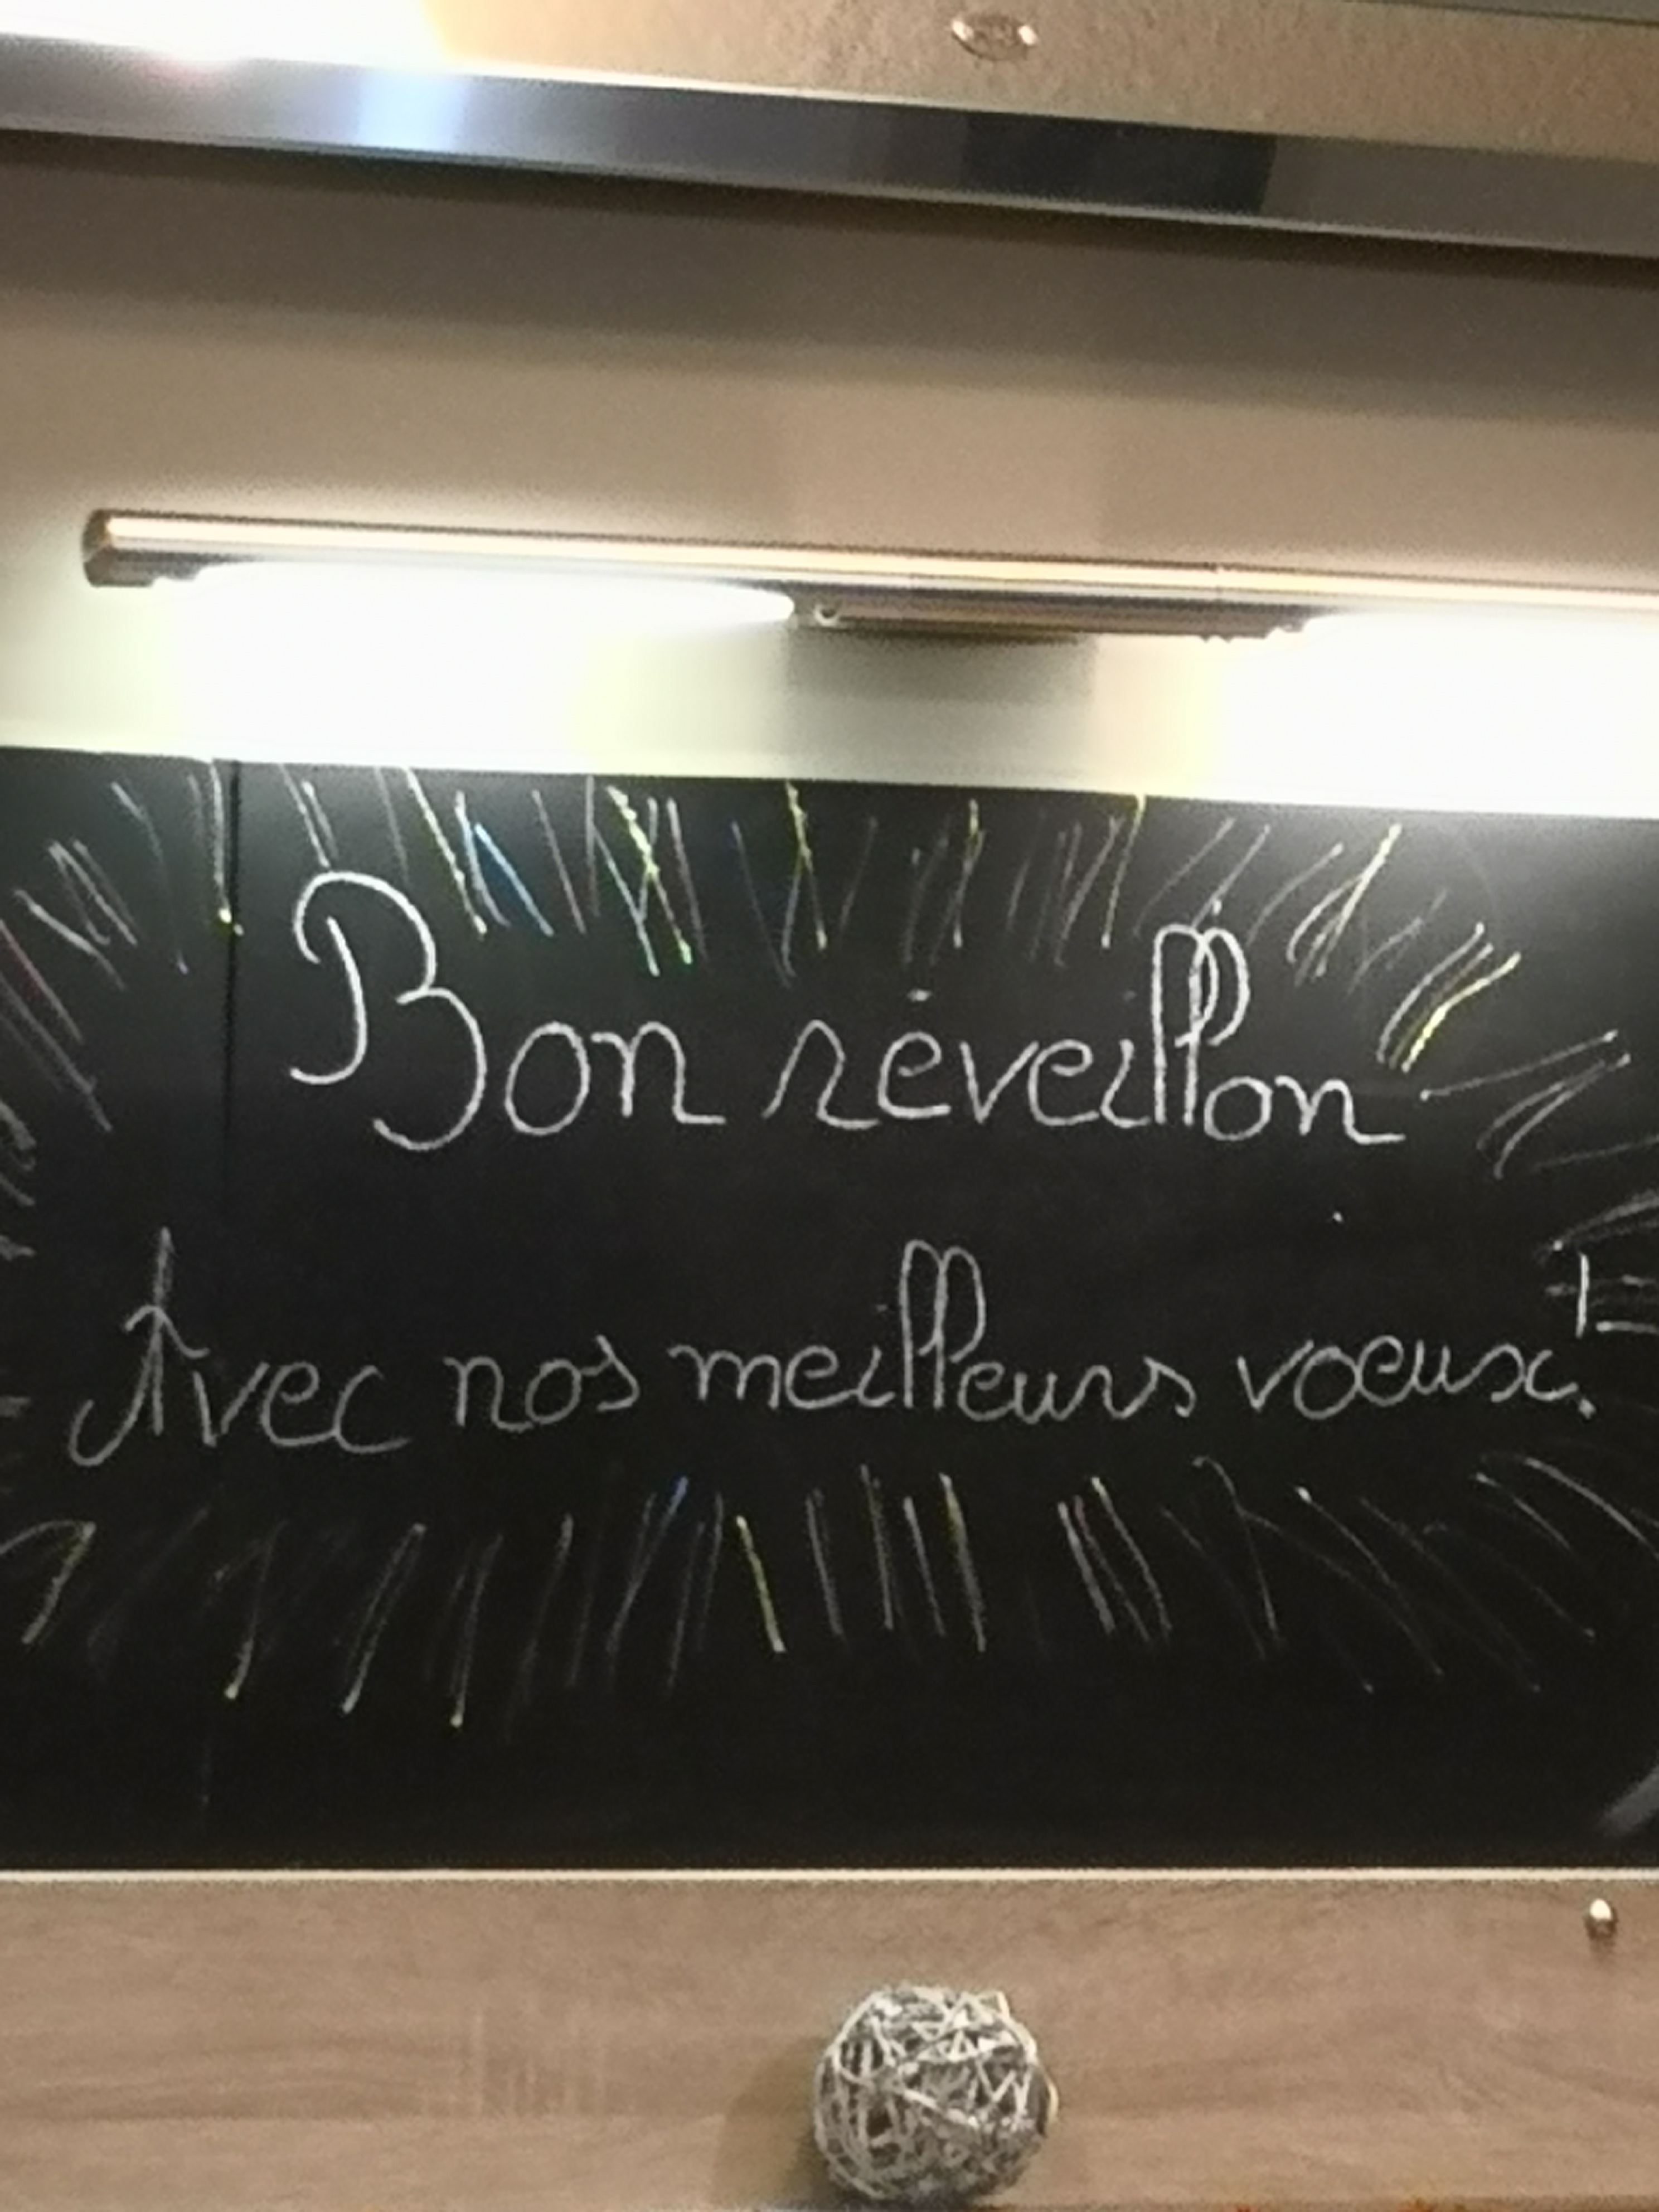 Bon réveillon
Avec nos meilleurs voeux!